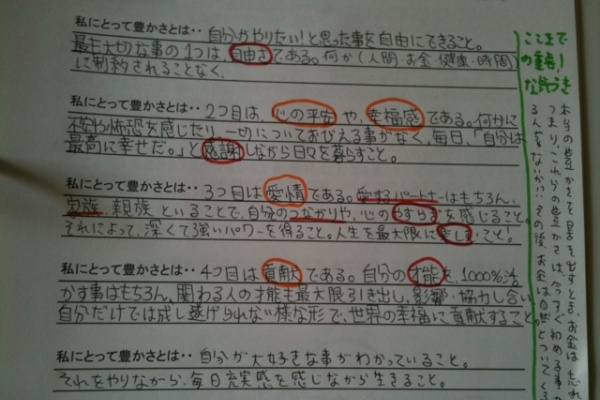 私にとって豊かさとは‥自分がやりたい!と思った事を自由にできること。
最も大切な事の1つは、自由さである。何か(人間・お金・健康・時間)
に制約されることなく、
私にとって豊かさとは‥2つ目は、心の平安や、幸福感である。何かに
不安や恐怖を感じたり、一切についておびえる事がなく、毎日、「自分は
最高に幸せだ。」と感謝しながら日々を暮らすこと。
私にとって豊かさとは‥3つ目は愛情である。愛するパートナーはもちろん、
家族、親族といることで、自分のつながりや、心のやすらぎを感じること。
それによって、深くて強いパワーを得ること。人生を最大限に楽しいこと!
私にとって豊かさとは‥4つ目は貢献である。自分の才能を、1000%活
かす事はもちろん、関わる人の才能も最大限引き出し、影響・協力し合い
自分だけでは成し遂げられない様な形で、世界の幸福に貢献すること。
私にとって豊かさとは‥自分が大好きな事がわかっていること。
それをやりながら、毎日充実感を感じながら生きること。
ここまで
の重要!
な気づき
本当の豊かさを見を出すとき、お金は忘れ
つまり、これらの豊かさは、今すぐ初める事が
るんじゃない!? その後、お金は自然とついてくる